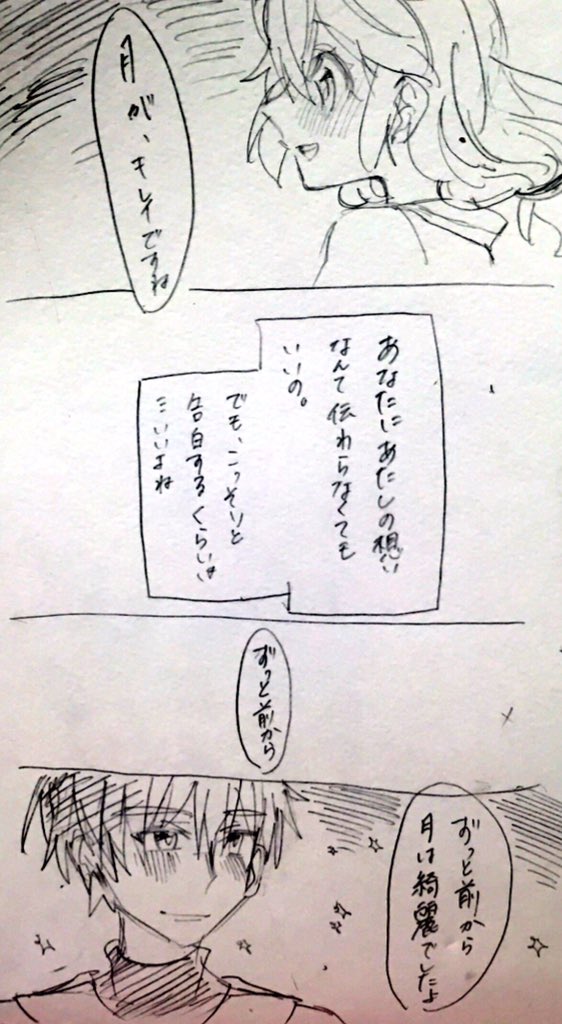 月が、キレイですね
あなたにあたしの想い
なんて伝わらなくても
いいの。
でも、こっそりと
告白するくらいは
いいよね
ずっと前から
ずっと前から
月は綺麗でしたよ